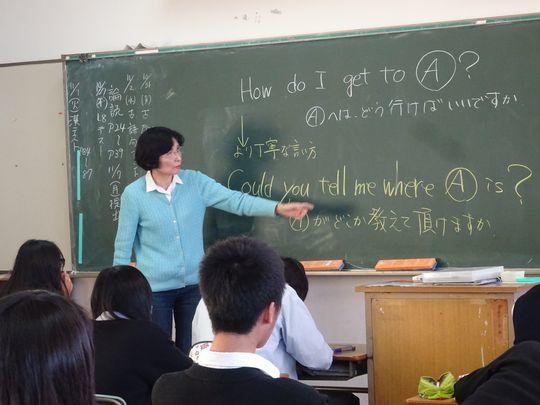 How do I get to Ⓐ?
Ⓐへは、どう行けばいいですか
↓
より丁寧な言い方
Could you tell me where Ⓐ is?
Ⓐがどこか教えて頂けますか
論説
P24
~
P39
84
~
87